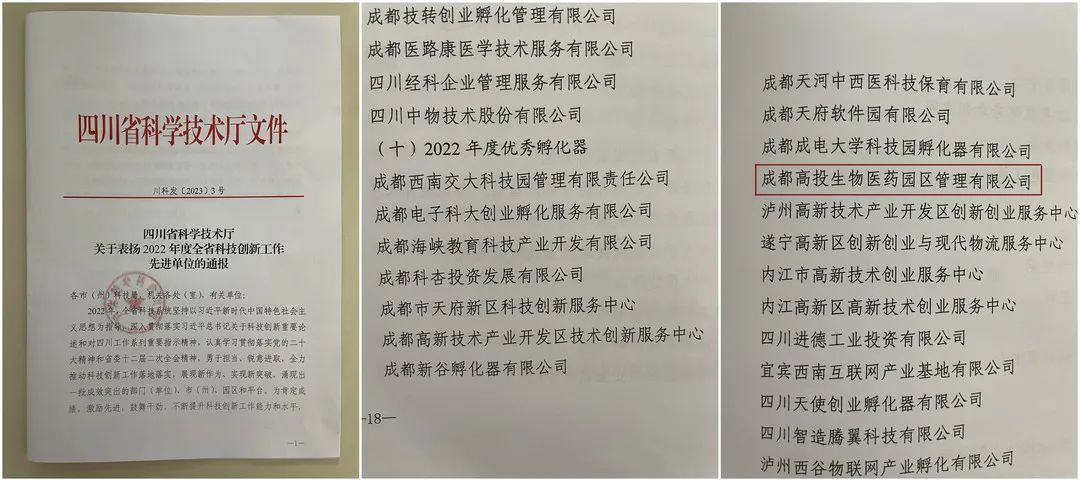 四川省科学技术厅文件
川科发〔2023〕3号
四川省科学技术厅
关于表扬2022年度全省科技创新工作
先进单位的通报
各市（州）科技局，机关各处（室），有关单位：
2022年，全省科技系统坚持以习近平新时代中国特色社会主
义思想为指导，深入贯彻落实习近平总书记关于科技创新重要论
述和对四川工作系列重要指示精神，认真学习贯彻落实党的二十
大精神和省委十二届二次全会精神，勇于担当、锐意进取，全力
推动科技创新工作落地落实，展现新作为、实现新突破，涌现出
一批成效突出的部门（单位）、市（州）、园区和平台。为肯定成
绩，激励先进，鼓舞干劲，不断提升科技创新工作能力和水平，
—1—
成都技转创业孵化管理有限公司
成都医路康医学技术服务有限公司
四川经科企业管理服务有限公司
四川中物技术股份有限公司
（十）2022年度优秀孵化器
成都西南交大科技园管理有限责任公司
成都电子科大创业孵化服务有限公司
成都海峡教育科技产业开发有限公司
成都科杏投资发展有限公司
成都市天府新区科技创新服务中心
成都高新技术产业开发区技术创新服务中心
成都新谷孵化器有限公司
-18—
成都天河中西医科技保育有限公司
成都天府软件园有限公司
成都成电大学科技园孵化器有限公司
成都高投生物医药园区管理有限公司
泸州高新技术产业开发区创新创业服务中心
遂宁高新区创新创业与现代物流服务中心
内江市高新技术创业服务中心
内江高新区高新技术创业服务中心
四川进德工业投资有限公司
宜宾西南互联网产业基地有限公司
四川天使创业孵化器有限公司
四川智造腾翼科技有限公司
泸州西谷物联网产业孵化有限公司